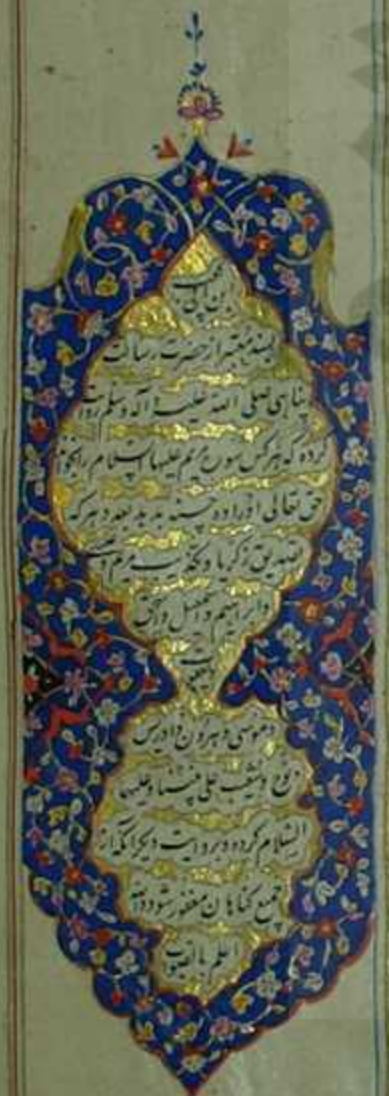 بن ابی کعب
بسند معتبر از حضرت رسالت
پناهی صلی الله علیه و آله و سلم روایت
کرده که هر کس سوره مریم علیها السلام را بخواند
حق تعالی او را ده حسنه بدهد بعدد هر که
تصدیق زکریا و تکذیب مریم
و ابراهیم و اسمعیل و اسحق
یعقوب
و موسی و هرون و ادریس
علی نبینا و علیهم
السلام کرده و بروایت دیگر آنکه از
جمیع گناهان مغفور شود والله
اعلم بالغیوب